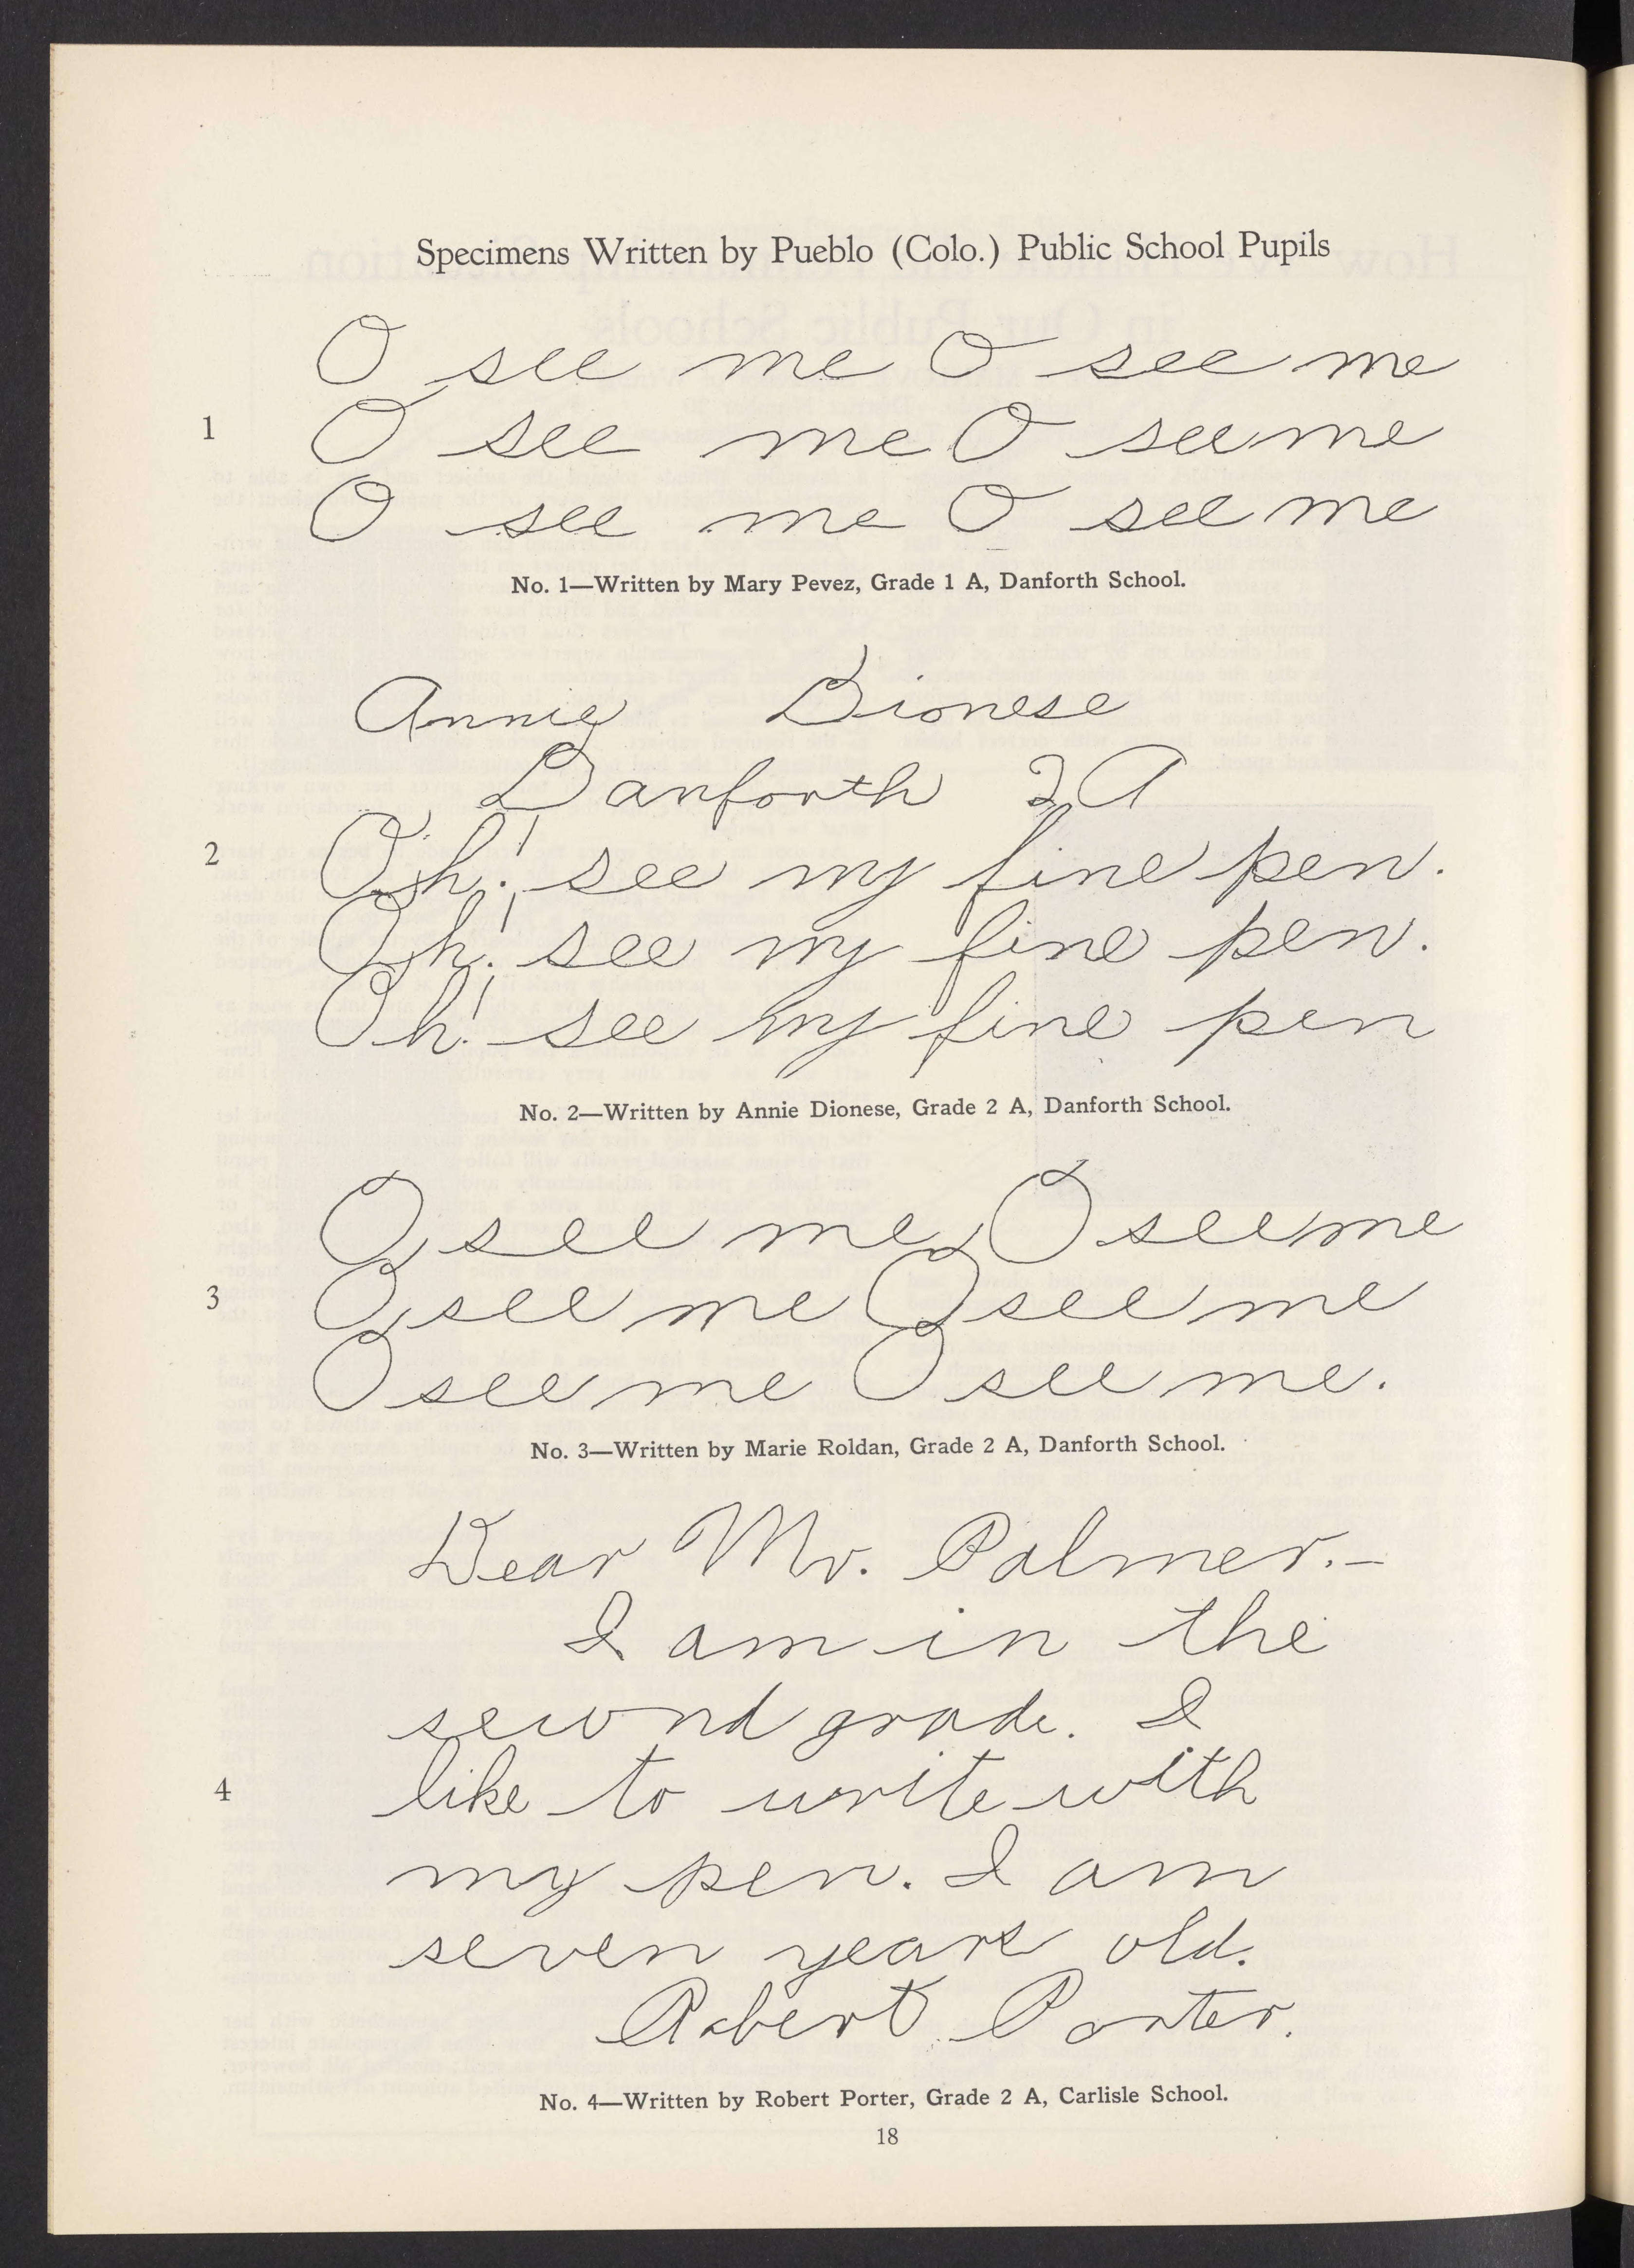 Specimens Written by Pueblo (Colo.) Public School Pupils
O see me O see me
1
O see me O see me
O see me O see me
No. 1—Written by Mary Pevez, Grade 1 A, Danforth School.
Annie Dionese
Danforth 2A
2
Oh! see my fine pen.
Oh! see my fine pen.
Oh! see my fine pen
No. 2—Written by Annie Dionese, Grade 2 A, Danforth School.
O see me O see me
3
O see me O see me
O see me O see me.
No. 3—Written by Marie Roldan, Grade 2 A, Danforth School.
Dear Mr. Palmer.—
I am in the
second grade. I
4
like to write with
my pen. I am
seven years old.
Robert Porter.
No. 4—Written by Robert Porter, Grade 2 A, Carlisle School.
18